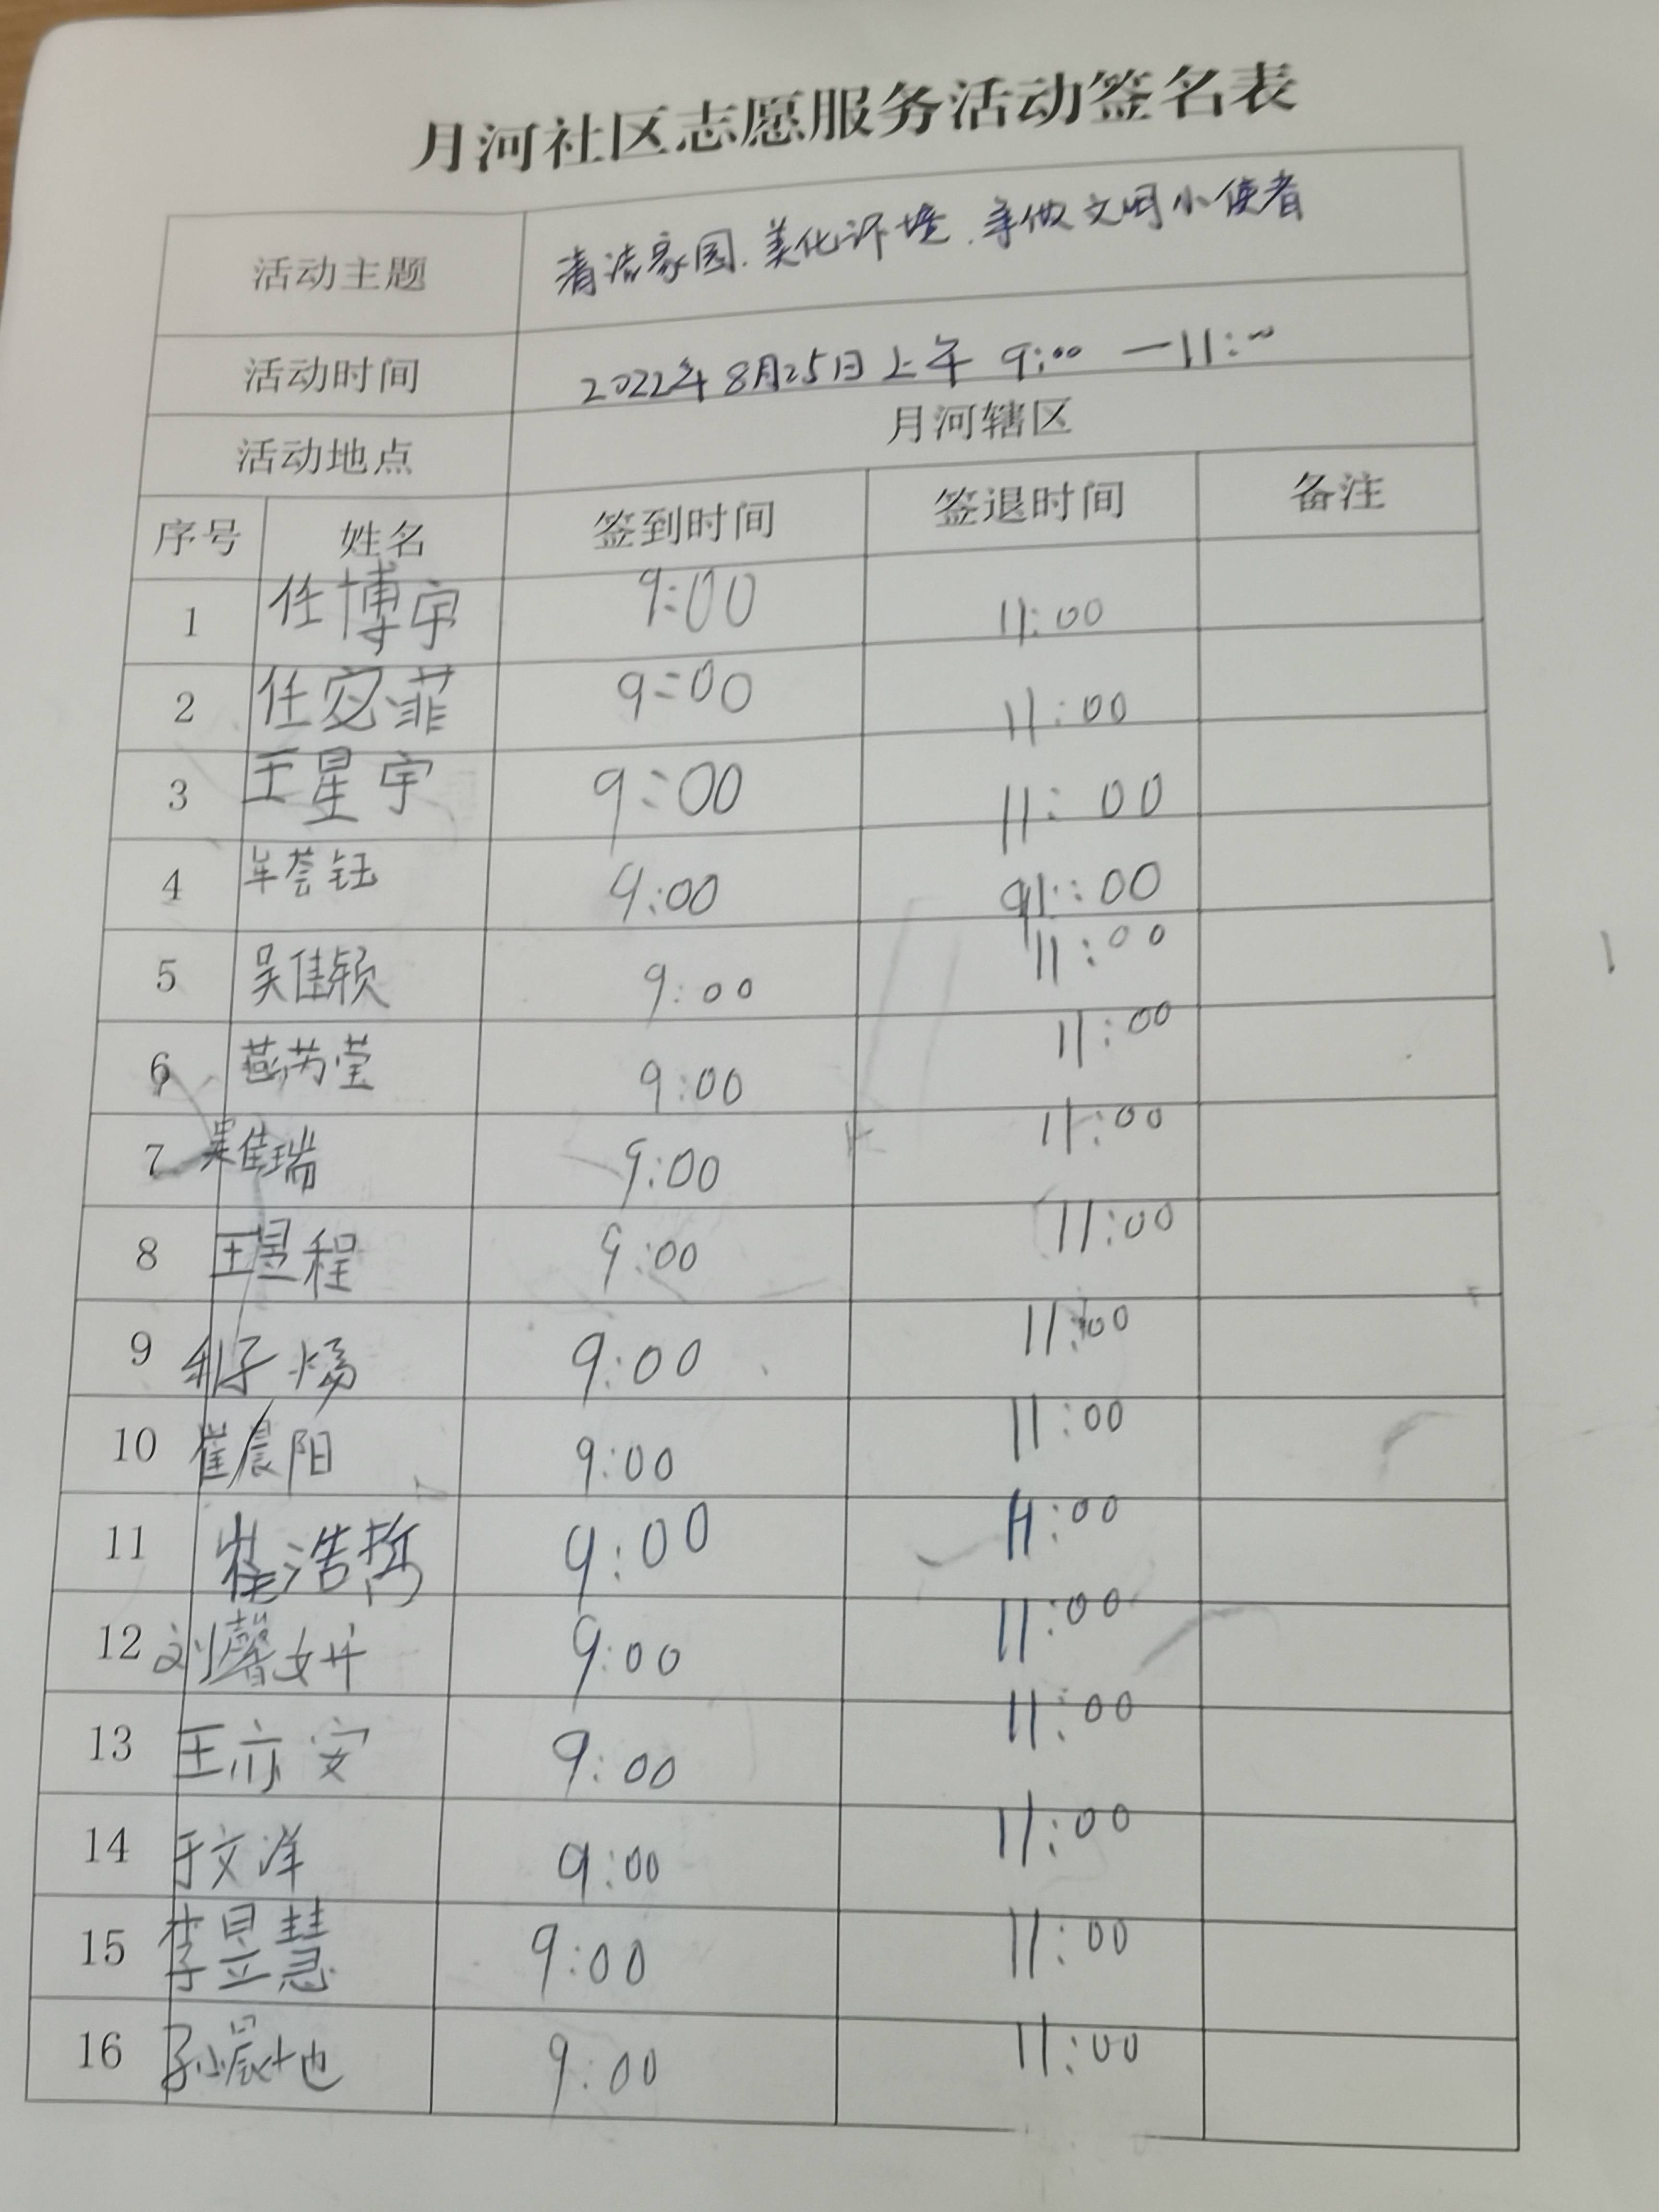 月河社区志愿服务活动签名表
活动主题 清洁家园.美化环境.争做文明小使者
活动时间 2022年8月25日上午 9:00 —11:00
活动地点 月河辖区
序号 姓名 签到时间 签退时间 备注
1 任博宇 9:00 11:00
2 任宓菲 9:00 11:00
3 王星宇 9:00 11:00
4 牟荟钰 9:00 11:00
5 吴佳颖 9:00 11:00
6 燕芮莹 9:00 11:00
7 吴佳瑞 9:00 11:00
8 王昱程 9:00 11:00
9 子炀 9:00 11:00
10 崔晨阳 9:00 11:00
11 崔浩哲 9:00 11:00
12 刘馨妍 9:00 11:00
13 王亦安 9:00 11:00
14 于文洋 9:00 11:00
15 李昱慧 9:00 11:00
16 孙晨地 9:00 11:00